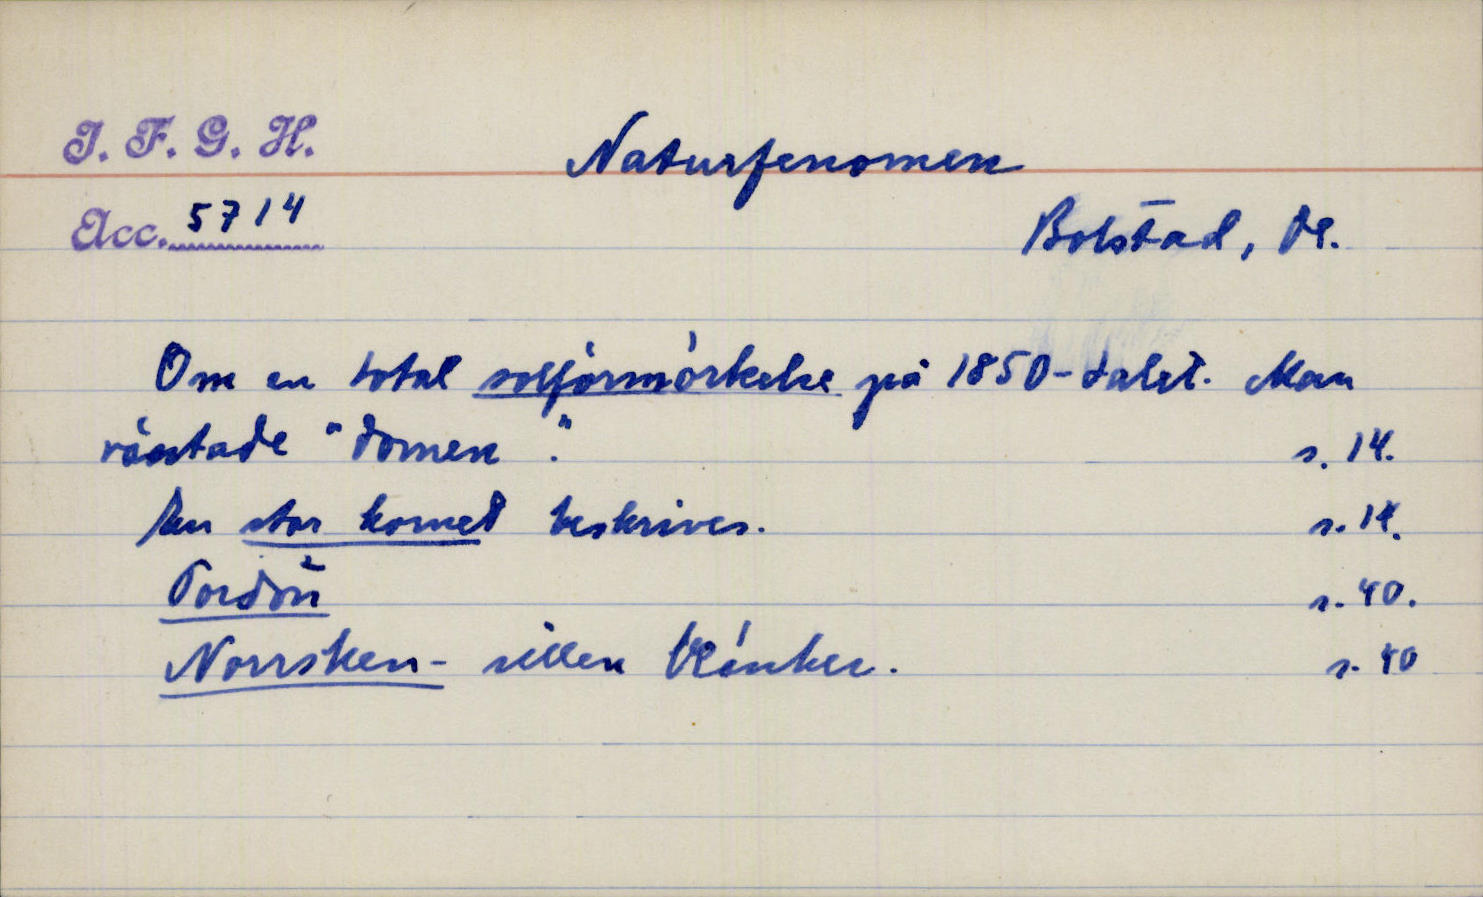 I. F. G. H.
Naturfenomen
Acc. 5714
Bolstad, Dl.
Om en total solförmörkelse på 1850-talet. Man
väntade "domen". s. 14.
En stor komet beskrives. s. 14.
Tordön s. 40.
Norrsken - sillen blänker. s. 40